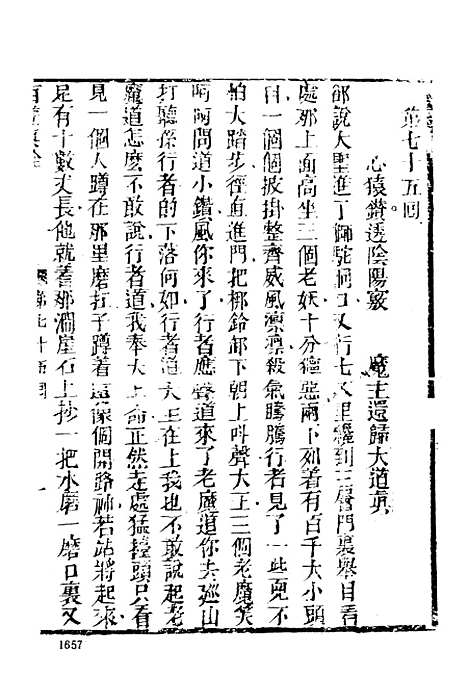 第七十五回
心猿鑽透陰陽竅　魔王還歸大道眞
卻說大聖進了獅駝洞口又行七八里纔到三層門裏舉目看
處那上面高坐三個老妖十分獰惡兩下列着有百千大小頭
目一個個披掛整齊威風凛凛殺氣騰騰行者見了一些兒不
怕大踏步徑直進門把梆鈴卸下朝上叫聲大王三個老魔笑
呵呵問道小鑽風你來了行者應聲道來了老魔道你去巡山
打聽孫行者的下落何如行者道大王在上我也不敢說起老
魔道怎麽不敢說行者道我奉大王命正然走處猛擡頭只看
見一個人蹲在那里磨扛子蹲着還像個開路神若站將起來
足有十數丈長他就着那澗崖石上抄一把水磨一磨口裏又
第七十五回
一
1657